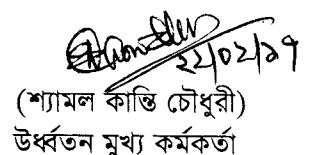 ২২/০২/১৭
(শ্যামল কান্তি চৌধুরী)
উর্ধ্বতন মুখ্য কর্মকর্তা